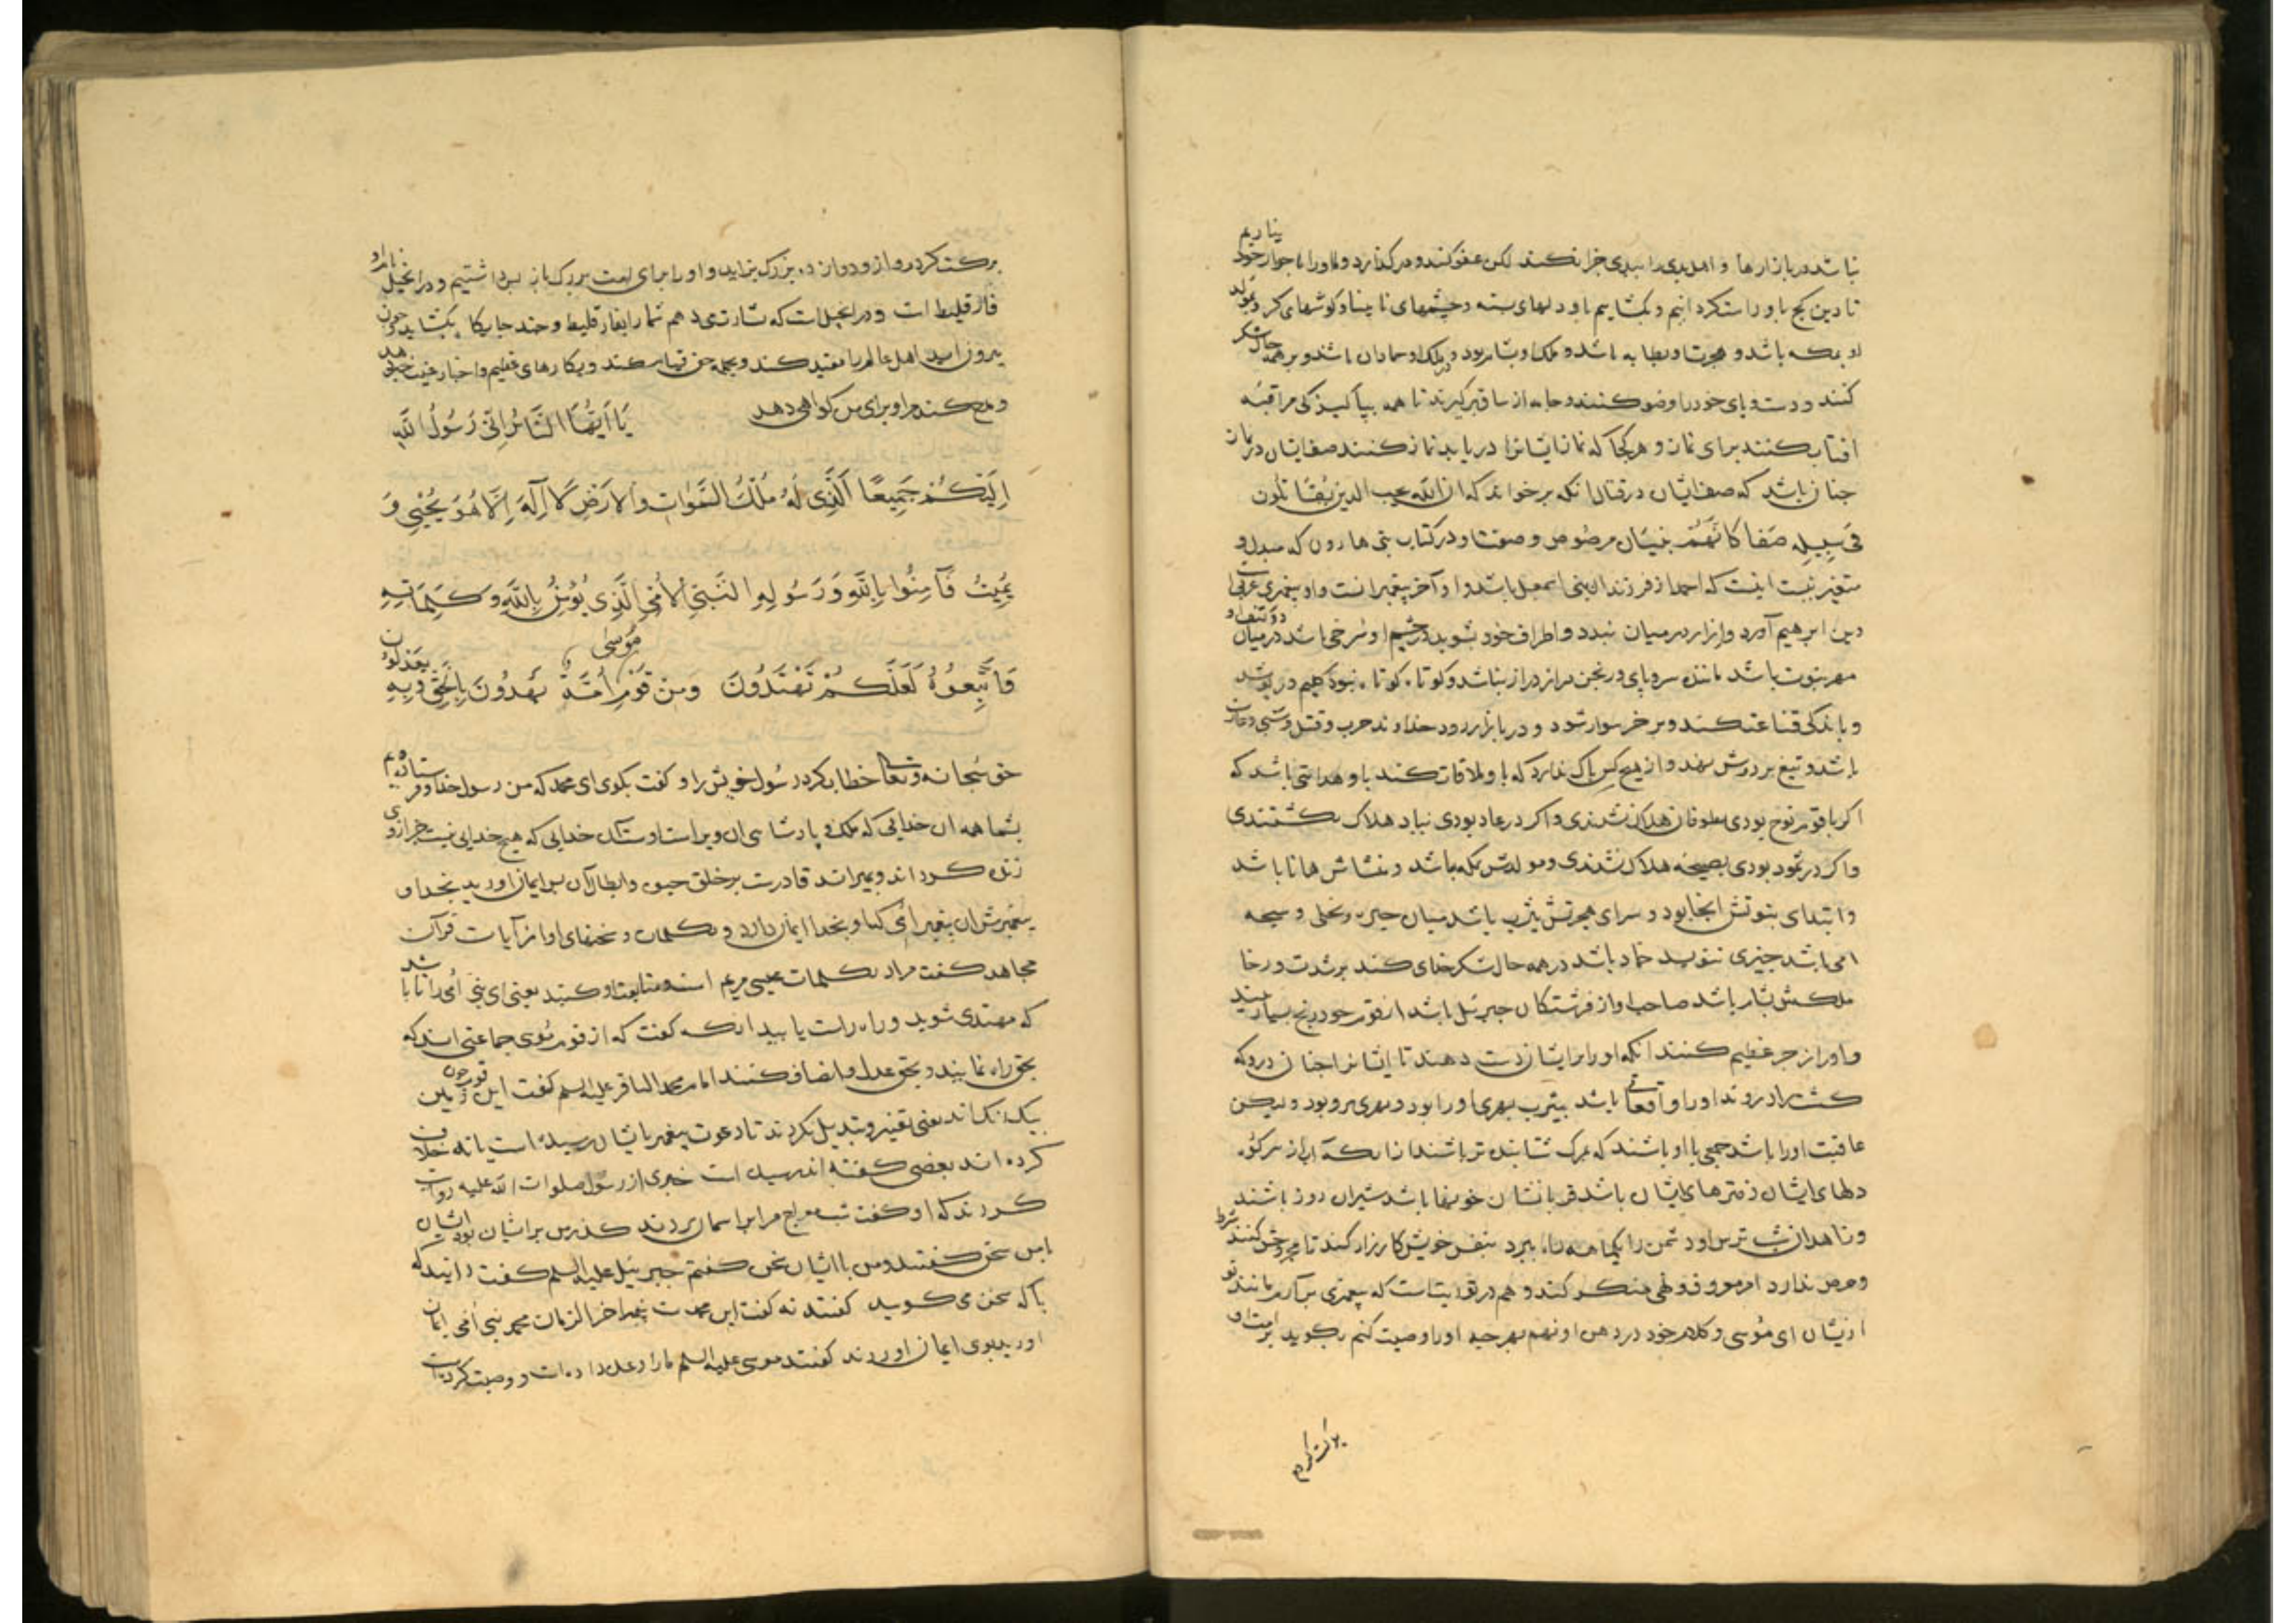 نباشد در بازارها و اهل بدی را ببدی جزا نکند لکن عفو کند و در گذارد و ما او را با جوار خود نیاریم
تا دین کج باو راست کردانیم و بکشاییم باو دلهای بسته و چشمهای نابینا و کوشهای کر و مولد
او بمکه باشد و هجرت او بطابه باشد و ملک او بشام بود و ملک او حمادان باشند و بر همه حال شکر
کنند و دست و پای خود را وضو کنند و جامه از ساق بر گیرند تا همه بپاکیزکی مراقبه
افتاب کنند برای نماز و هر کجا که نماز ایشانرا دریابد نماز کنند صف ایشان در نماز
چنان باشد که صف ایشان در قتال انکه بر خواند که ان الله یحب الذین یقاتلون
فی سبیله صفا کانهم بنیان مرصوص و صفت او در کتاب بنی هارون که مبدل و
متغیر نیست اینست که احمد از فرزندان بنی اسمعیل باشد و او آخر پیغمبرانست و او پیغمبری عربی
دین ابرهیم آورد و ازار در میان بندد و اطراف خود بشوید در چشم او سرخی باشد در میان دو کتف او
مهر نبوت باشد مانند سر و پای و رنجن دراز دراز نباشد و کوتاه کوتاه نبود کلیم در پوشد
و باندکی قناعت کند و بر خر سوار شود و در بازار رود خداوند حرب و قتل و سبی و غارت
باشد و تیغ بر دوش نهد و از هیچ کس باک ندارد که باو ملاقات کند باو هدایتی باشد که
اکر با قوم نوح بودی بطوفان هلاک نشدندی و اکر در عاد بودی بباد هلاک نکشتندی
و اکر در ثمود بودی بصیحه هلاک نشدندی و مولدش بمکه باشد و منشاش هانا باشد
و ابتدای نبوتش انجا بود و سرای هجرتش یثرب باشد میان حره و نخلی و سبخه
امی باشد چیزی ننویسد حماد باشد در همه حال شکر خدای کند بر شدت و رخا
ملکش بشام باشد صاحب او از فرشتکان جبرئیل باشد از قوم خود رنج بسیار بیند
و او را زجر عظیم کنند انکه او را بر ایشان دست دهند تا ایشانرا چنان درود که
کشت را دروند او را وقعاتی باشد بیثرب بهری او را بود و بهری برو بود و لیکن
عاقبت او را باشد جمعی با او باشند که بمرک شتابنده تر باشند از انکه آب از سر کوه
دلهای ایشان دفترهای ایشان باشد قربانشان خونها باشد شیران روز باشند
و زاهدان شب ترس او دشمن را یکماهه راه ببرد بنفس خویش کارزار کند تا مجروحش کنند شرط
و حرص ندارد امر معروف و نهی منکر کند و هم در توریتست که پیغمبری برآرم مانند تو
از ایشان ای موسی و کلام خود در دهن او نهم بهر چه او را وصیت کنم بکوید برامت او
برکت کردم
برکت کردم و از و دوازده بزرک بزاید و او را برای امت بزرک باز پس داشتیم و در انجیل نام او
فارقلیط است و در انجیل است که بشارت می دهم شما را بفارقلیط و چند جایکا بکشاید چون
بیرون آید اهل عالم را مقید کند و بجمله حق قیام کند و بکارهای عظیم و اخبار غیب خبر دهد
و مدح کند مرا و برای من کواهی دهد یَا اَیُّهَا النَّاسُ اِنّی رَسُولُ اللهِ
اِلَیْکُمْ جَمِیعًا اَلَّذِی لَهُ مُلْکُ السَّمَوَاتِ وَالاَرْضِ لَا اِلَهَ اِلَّا هُوَ یُحْیِی وَ
یُمِیتُ فَآمِنُوا بِاللهِ وَرَسُولِهِ النَّبِیِّ الاُمِّیِّ الَّذِی یُؤْمِنُ بِاللهِ وَکَلِمَاتِهِ
وَاتَّبِعُوهُ لَعَلَّکُمْ تَهْتَدُونَ وَمِنْ قَوْمِ مُوسٰی اُمَّةٌ یَهْدُونَ بِالْحَقِّ وَبِهِ یَعْدِلُونَ
حق سبحانه و تعالی خطاب کرد رسول خویش را و کفت بکوی ای محمد که من رسول خدا و فرستاده ام
بشما همه ان خدایی که ملک و پادشاهی ان ویراست و ستاند خدایی که هیچ خدایی نیست جز از وی
زنده کرداند و بمیراند قادرست بر خلق حیوة و ابطال آن پس ایمان آورید بخدا و
پیغمبرش ان پیغمبر امی که او بخدا ایمان دارد و بکلمات و سخنهای او از آیات قرآن
مجاهد کفت مراد بکلمات عیسی مریم است و متابعت او کنید یعنی ای نبی امی را تا باشد
که مهتدی شوید و راه راست یابید انکه کفت که از قوم موسی جماعتی اند که
بحق راه نمایند و بحق عدل و انصاف کنند امام محمد الباقر علیه السلم کفت این قوم چون زمین
یک رنک اند یعنی تغییر و تبدیل نکردند تا دعوت پیغمبر بایشان رسیده است یا نه خلاف
کرده اند بعضی کفته اند رسیده است خبری از رسول صلوات الله علیه روایت
کردند که او کفت شب معراج مرا بر آسمان بردند کذر من بر ایشان بود ایشان
با من سخن کفتند و من با ایشان سخن کفتم جبرئیل علیه السلم کفت دانید که
با که سخن می کویید کفتند نه کفت این محمد است پیغمبر اخر الزمان محمد نبی امی ایمان
اورید بوی ایمان اوردند کفتند موسی علیه السلم ما را وعده داده است و وصیت کرده است